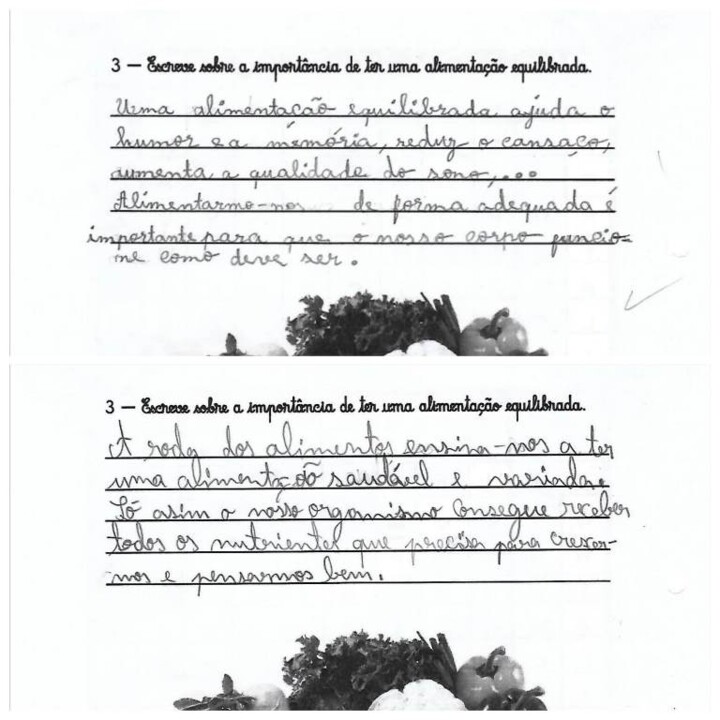 3 — Escreve sobre a importância de ter uma alimentação equilibrada.
Uma alimentação equilibrada ajuda o
humor e a memória, reduz o cansaço,
aumenta a qualidade do sono,...
Alimentarmo-nos de forma adequada é
importante para que o nosso corpo funcio=
ne como deve ser.
3 — Escreve sobre a importância de ter uma alimentação equilibrada.
A roda dos alimentos ensina-nos a ter
uma alimentação saudável e variada.
Só asim o nosso organismo consegue receber
todos os nutrientes que precisa para crescer-
mos e pensarmos bem.